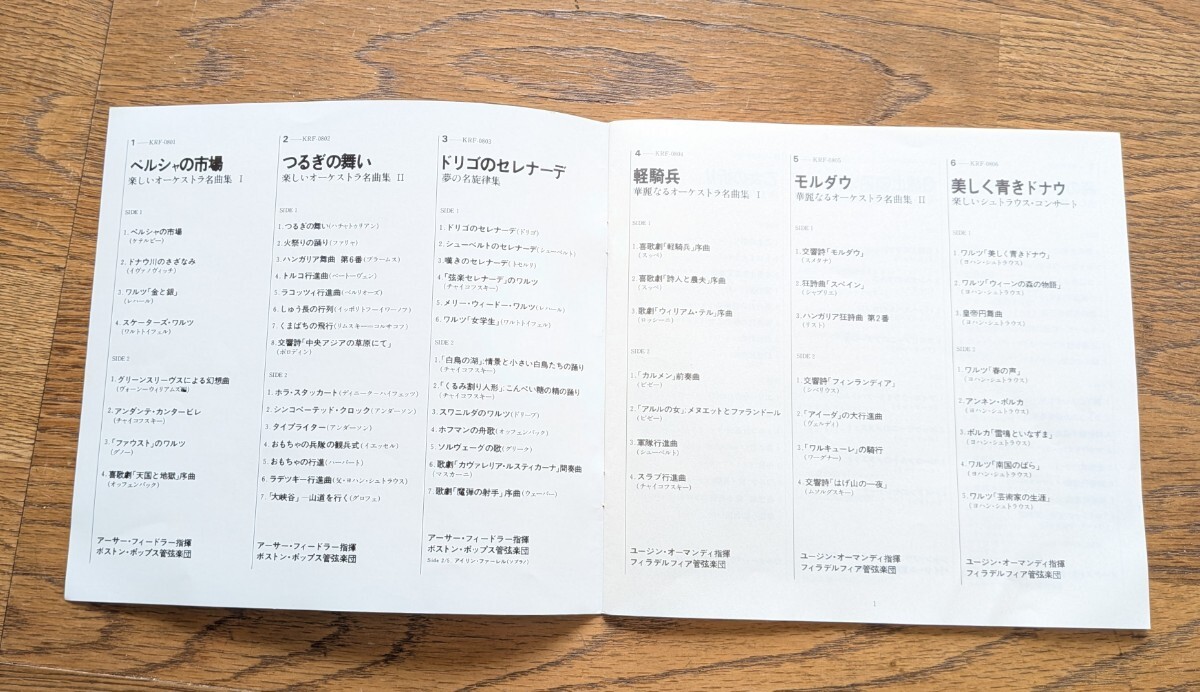 1——KRF-0801
ペルシャの市場
楽しいオーケストラ名曲集 I
SIDE 1
1. ペルシャの市場
(ケテルビー)
2. ドナウ川のさざなみ
(イヴァノヴィッチ)
3. ワルツ「金と銀」
(レハール)
4. スケーターズ・ワルツ
(ワルトトイフェル)
SIDE 2
1. グリーンスリーヴスによる幻想曲
(ヴォーン=ウィリアムズ編)
2. アンダンテ・カンタービレ
(チャイコフスキー)
3. 「ファウスト」のワルツ
(グノー)
4. 喜歌劇「天国と地獄」序曲
(オッフェンバック)
アーサー・フィードラー指揮
ボストン・ポップス管弦楽団
2——KRF-0802
つるぎの舞い
楽しいオーケストラ名曲集 II
SIDE 1
1. つるぎの舞い(ハチャトゥリアン)
2. 火祭りの踊り(ファリャ)
3. ハンガリア舞曲 第6番(ブラームス)
4. トルコ行進曲(ベートーヴェン)
5. ラコッツィ行進曲(ベルリオーズ)
6. しゅう長の行列(イッポリトフ=イワーノフ)
7. くまばちの飛行(リムスキー=コルサコフ)
8. 交響詩「中央アジアの草原にて」
(ボロディン)
SIDE 2
1. ホラ・スタッカート(ディニーク=ハイフェッツ)
2. シンコペーテッド・クロック(アンダーソン)
3. タイプライター(アンダーソン)
4. おもちゃの兵隊の観兵式(イエッセル)
5. おもちゃの行進(ハーバート)
6. ラデツキー行進曲(父・ヨハン・シュトラウス)
7. 「大峡谷」—山道を行く(グロフェ)
アーサー・フィードラー指揮
ボストン・ポップス管弦楽団
3——KRF-0803
ドリゴのセレナーデ
夢の名旋律集
SIDE 1
1. ドリゴのセレナーデ(ドリゴ)
2. シューベルトのセレナーデ(シューベルト)
3. 嘆きのセレナーデ(トセルリ)
4. 「弦楽セレナーデ」のワルツ
(チャイコフスキー)
5. メリー・ウィードー・ワルツ(レハール)
6. ワルツ「女学生」(ワルトトイフェル)
SIDE 2
1. 「白鳥の湖」:情景と小さい白鳥たちの踊り
(チャイコフスキー)
2. 「くるみ割り人形」:こんぺい糖の精の踊り
(チャイコフスキー)
3. スワニルダのワルツ(ドリーブ)
4. ホフマンの舟歌(オッフェンバック)
5. ソルヴェーグの歌(グリーク)
6. 歌劇「カヴァレリア・ルスティカーナ」間奏曲
(マスカーニ)
7. 歌劇「魔弾の射手」序曲(ウェーバー)
アーサー・フィードラー指揮
ボストン・ポップス管弦楽団
Side 2/5, アイリン・ファーレル(ソプラノ)
4——KRF-0804
軽騎兵
華麗なるオーケストラ名曲集 I
SIDE 1
1. 喜歌劇「軽騎兵」序曲
(スッペ)
2. 喜歌劇「詩人と農夫」序曲
(スッペ)
3. 歌劇「ウィリアム・テル」序曲
(ロッシーニ)
SIDE 2
1. 「カルメン」前奏曲
(ビゼー)
2. 「アルルの女」:メヌエットとファランドール
(ビゼー)
3. 軍隊行進曲
(シューベルト)
4. スラブ行進曲
(チャイコフスキー)
ユージン・オーマンディ指揮
フィラデルフィア管弦楽団
5——KRF-0805
モルダウ
華麗なるオーケストラ名曲集 II
SIDE 1
1. 交響詩「モルダウ」
(スメタナ)
2. 狂詩曲「スペイン」
(シャブリエ)
3. ハンガリア狂詩曲 第2番
(リスト)
SIDE 2
1. 交響詩「フィンランディア」
(シベリウス)
2. 「アイーダ」の大行進曲
(ヴェルディ)
3. 「ワルキューレ」の騎行
(ワーグナー)
4. 交響詩「はげ山の一夜」
(ムソルグスキー)
ユージン・オーマンディ指揮
フィラデルフィア管弦楽団
6——KRF-0806
美しく青きドナウ
楽しいシュトラウス・コンサート
SIDE 1
1. ワルツ「美しく青きドナウ」
(ヨハン・シュトラウス)
2. ワルツ「ウィーンの森の物語」
(ヨハン・シュトラウス)
3. 皇帝円舞曲
(ヨハン・シュトラウス)
SIDE 2
1. ワルツ「春の声」
(ヨハン・シュトラウス)
2. アンネン・ポルカ
(ヨハン・シュトラウス)
3. ポルカ「雷鳴といなずま」
(ヨハン・シュトラウス)
4. ワルツ「南国のばら」
(ヨハン・シュトラウス)
5. ワルツ「芸術家の生涯」
(ヨハン・シュトラウス)
ユージン・オーマンディ指揮
フィラデルフィア管弦楽団
1